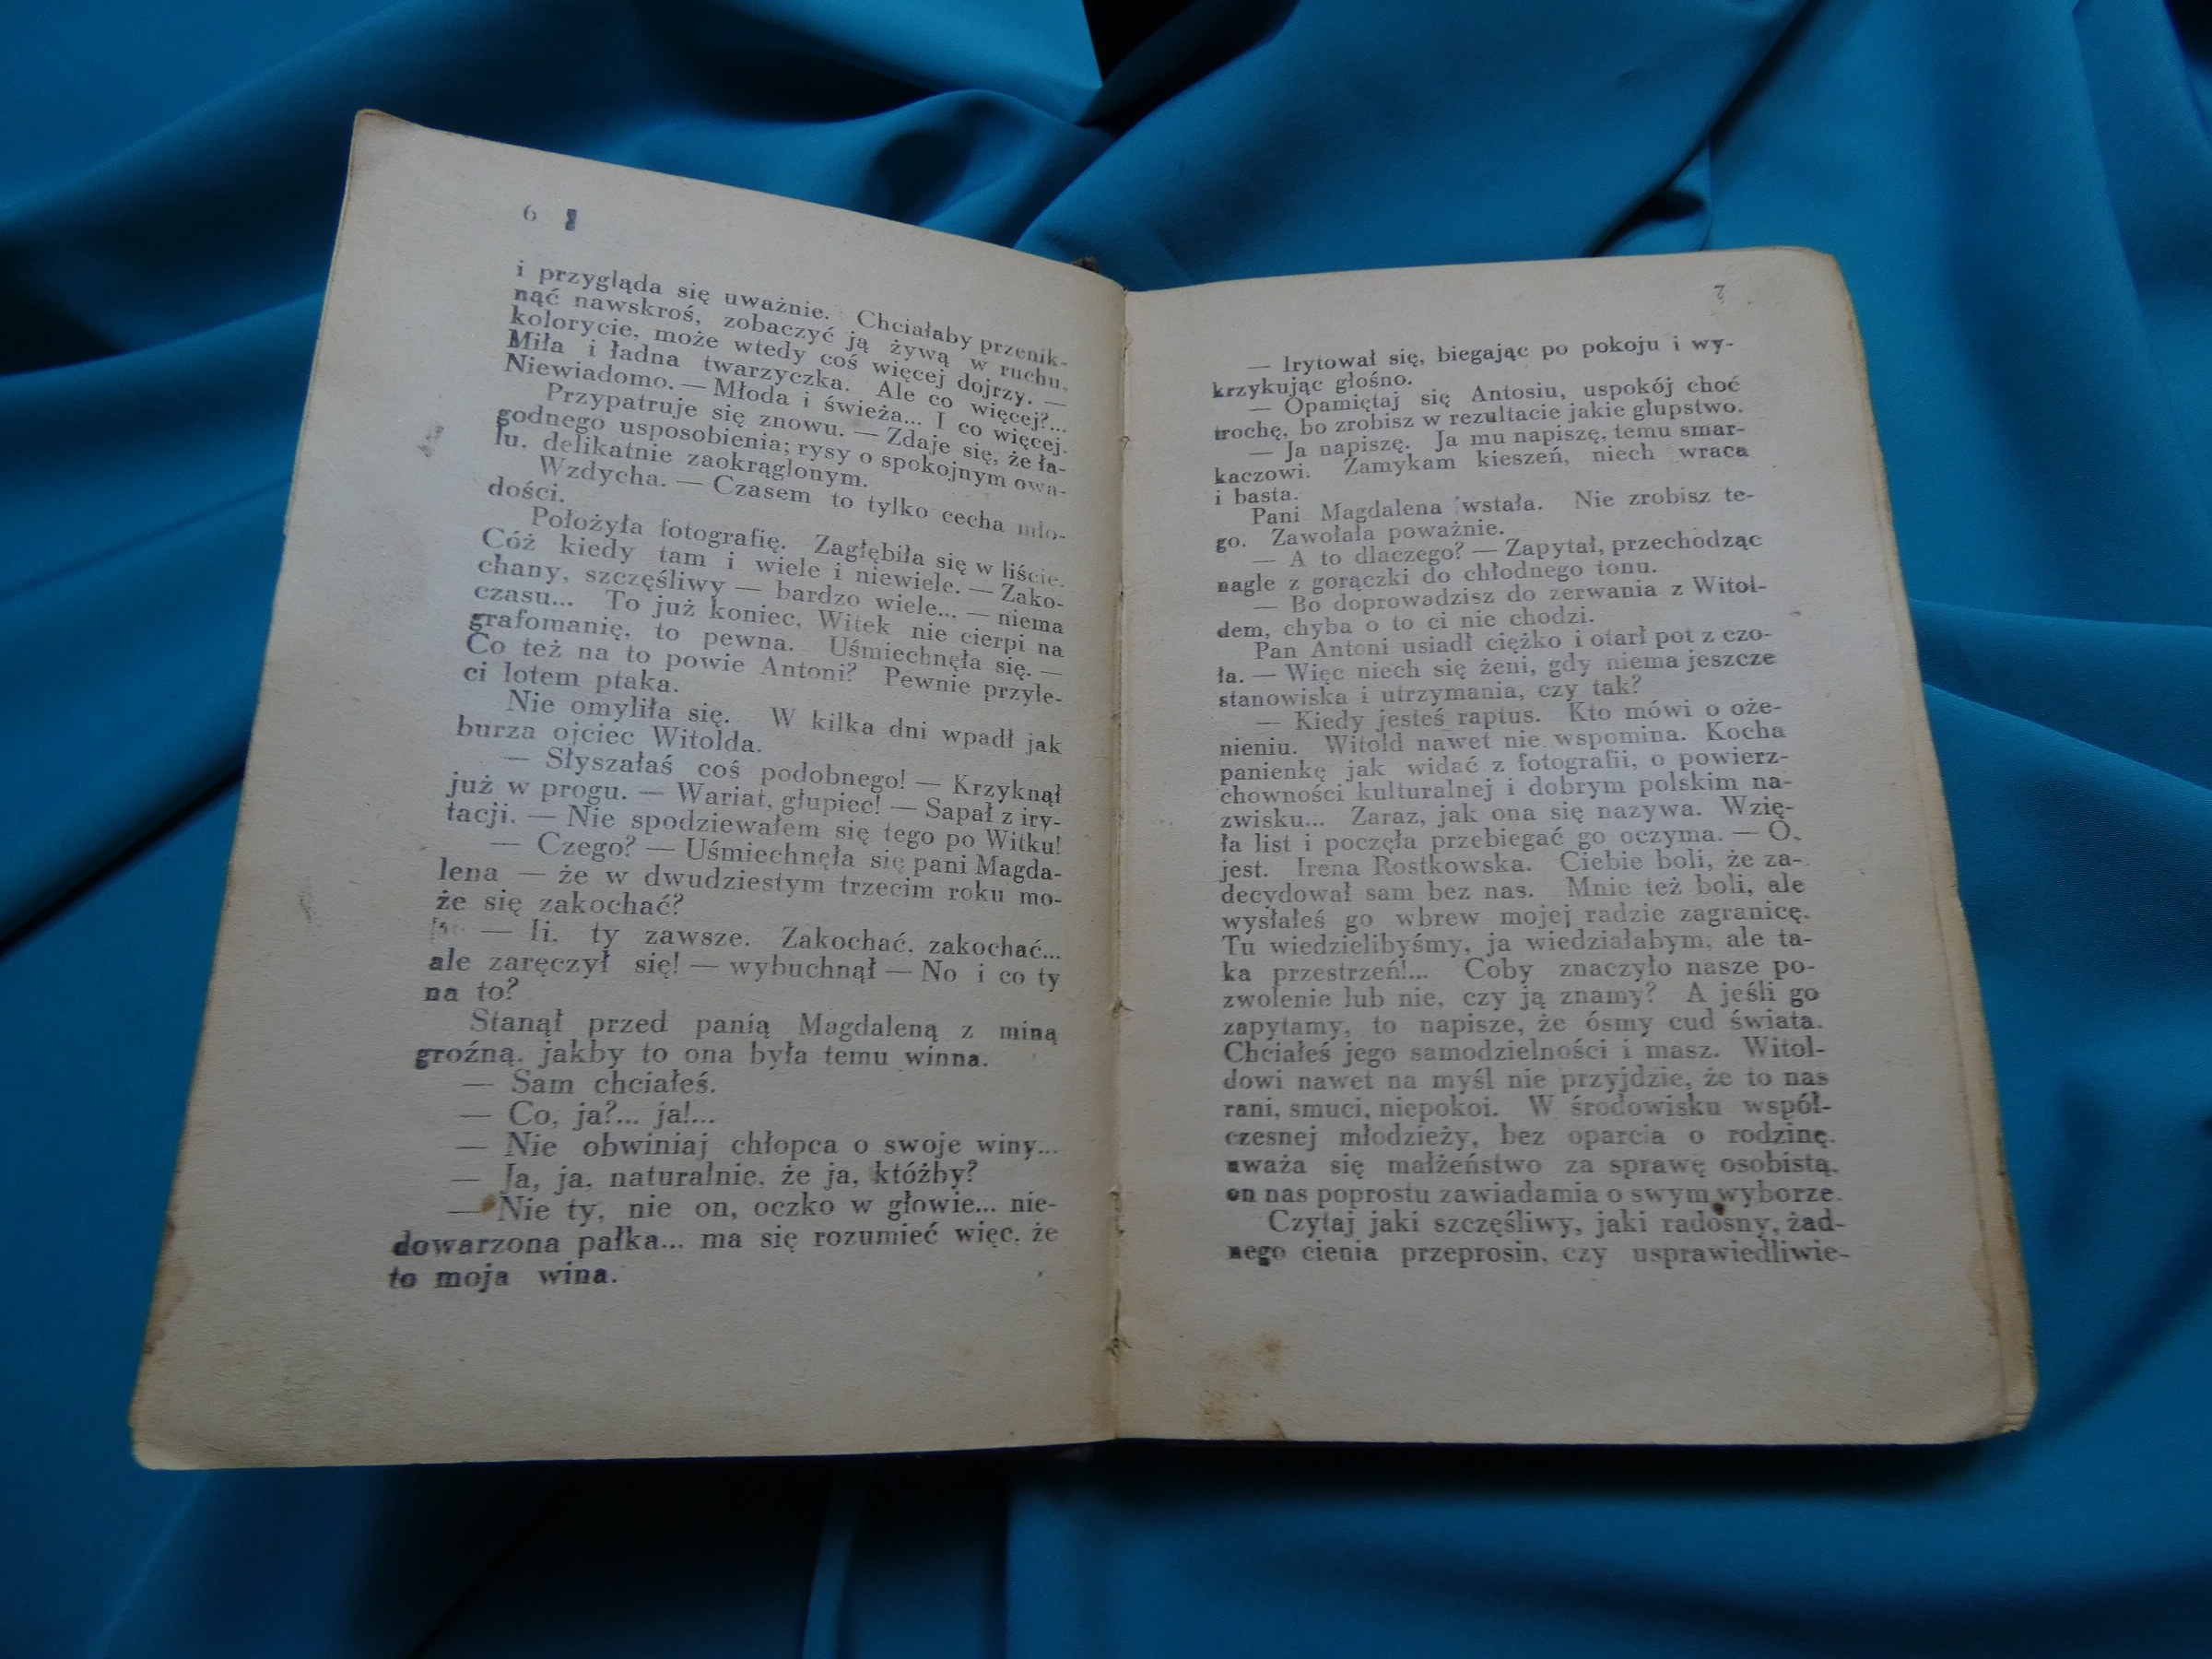 6
i przygląda się uważnie. Chciałaby przenik-
nąć nawskroś, zobaczyć ją żywą w ruchu,
kolorycie, może wtedy coś więcej dojrzy. —
Miła i ładna twarzyczka. Ale co więcej?...
Niewiadomo. — Młoda i świeża... I co więcej.
Przypatruje się znowu. — Zdaje się, że ła-
godnego usposobienia; rysy o spokojnym owa-
lu, delikatnie zaokrąglonym.
Wzdycha. — Czasem to tylko cecha mło-
dości.
Położyła fotografię. Zagłębiła się w liście.
Cóż kiedy tam i wiele i niewiele. — Zako-
chany, szczęśliwy — bardzo wiele... — niema
czasu... To już koniec, Witek nie cierpi na
grafomanię, to pewna. Uśmiechnęła się. —
Co też na to powie Antoni? Pewnie przyle-
ci lotem ptaka.
Nie omyliła się. W kilka dni wpadł jak
burza ojciec Witolda.
— Słyszałaś coś podobnego! — Krzyknął
już w progu. — Wariat, głupiec! — Sapał z iry-
tacji. — Nie spodziewałem się tego po Witku!
— Czego? — Uśmiechnęła się pani Magda-
lena — że w dwudziestym trzecim roku mo-
że się zakochać?
— Ii, ty zawsze. Zakochać, zakochać...
ale zaręczył się! — wybuchnął — No i co ty
na to?
Stanął przed panią Magdaleną z miną
groźną, jakby to ona była temu winna.
— Sam chciałeś.
— Co, ja?... ja!...
— Nie obwiniaj chłopca o swoje winy...
— Ja, ja, naturalnie, że ja, któżby?
— Nie ty, nie on, oczko w głowie... nie-
dowarzona pałka... ma się rozumieć więc, że
to moja wina.
7
— Irytował się, biegając po pokoju i wy-
krzykując głośno.
— Opamiętaj się Antosiu, uspokój choć
trochę, bo zrobisz w rezultacie jakie głupstwo.
— Ja napiszę. Ja mu napiszę, temu smar-
kaczowi. Zamykam kieszeń, niech wraca
i basta.
Pani Magdalena wstała. Nie zrobisz te-
go. Zawołała poważnie.
— A to dlaczego? — Zapytał, przechodząc
nagle z gorączki do chłodnego tonu.
— Bo doprowadzisz do zerwania z Witol-
dem, chyba o to ci nie chodzi.
Pan Antoni usiadł ciężko i otarł pot z czo-
ła. — Więc niech się żeni, gdy niema jeszcze
stanowiska i utrzymania, czy tak?
— Kiedy jesteś raptus. Kto mówi o oże-
nieniu. Witold nawet nie wspomina. Kocha
panienkę jak widać z fotografii, o powierz-
chowności kulturalnej i dobrym polskim na-
zwisku... Zaraz, jak ona się nazywa. Wzię-
ła list i poczęła przebiegać go oczyma. — O,
jest. Irena Rostkowska. Ciebie boli, że za-
decydował sam bez nas. Mnie też boli, ale
wysłałeś go wbrew mojej radzie zagranicę.
Tu wiedzielibyśmy, ja wiedziałabym, ale ta-
ka przestrzeń!... Coby znaczyło nasze po-
zwolenie lub nie, czy ją znamy? A jeśli go
zapytamy, to napisze, że ósmy cud świata.
Chciałeś jego samodzielności i masz. Witol-
dowi nawet na myśl nie przyjdzie, że to nas
rani, smuci, niepokoi. W środowisku współ-
czesnej młodzieży, bez oparcia o rodzinę,
uważa się małżeństwo za sprawę osobistą,
on nas poprostu zawiadamia o swym wyborze.
Czytaj jaki szczęśliwy, jaki radosny, żad-
nego cienia przeprosin, czy usprawiedliwie-